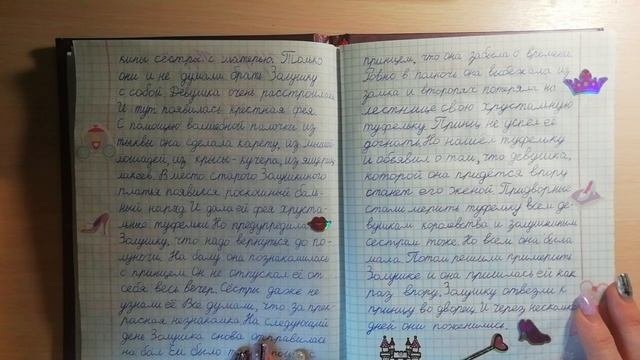 кины сёстры с матерью. Только
они и не думали брать Золушку
с собой. Девушка очень расстроилась.
И тут появилась крёстная фея.
С помощью волшебной палочки из
тыквы она сделала карету, из мышей
лошадей, из крысы - кучера, из ящериц
лакеев. Вместо старого Золушкиного
платья появился роскошный баль-
ный наряд. И дала ей фея хруста-
льные туфельки. Но предупредила
Золушку, что надо вернуться до по-
луночи. На балу она познакомилась
с принцем. Он не отпускал её от
себя весь вечер. Сёстры даже не
узнали её. Все думали, что за прек-
расная незнакомка. На следующий
день Золушка снова отправилась
на бал. Ей было
принцем, что она забыла о времени.
Ровно в полночь она выбежала из
замка и второпях потеряла на
лестнице свою хрустальную
туфельку. Принц не успел её
догнать. Но нашёл туфельку
и объявил о том, что девушка,
которой она придётся впору
станет его женой. Придворные
стали мерить туфельку всем де-
вушкам королевства и золушкиным
сёстрам тоже. Но всем она была
мала. Потом решили примерить
Золушке и она пришлась ей как
раз впору. Золушку отвезли к
принцу во дворец. И через несколько
дней они поженились.